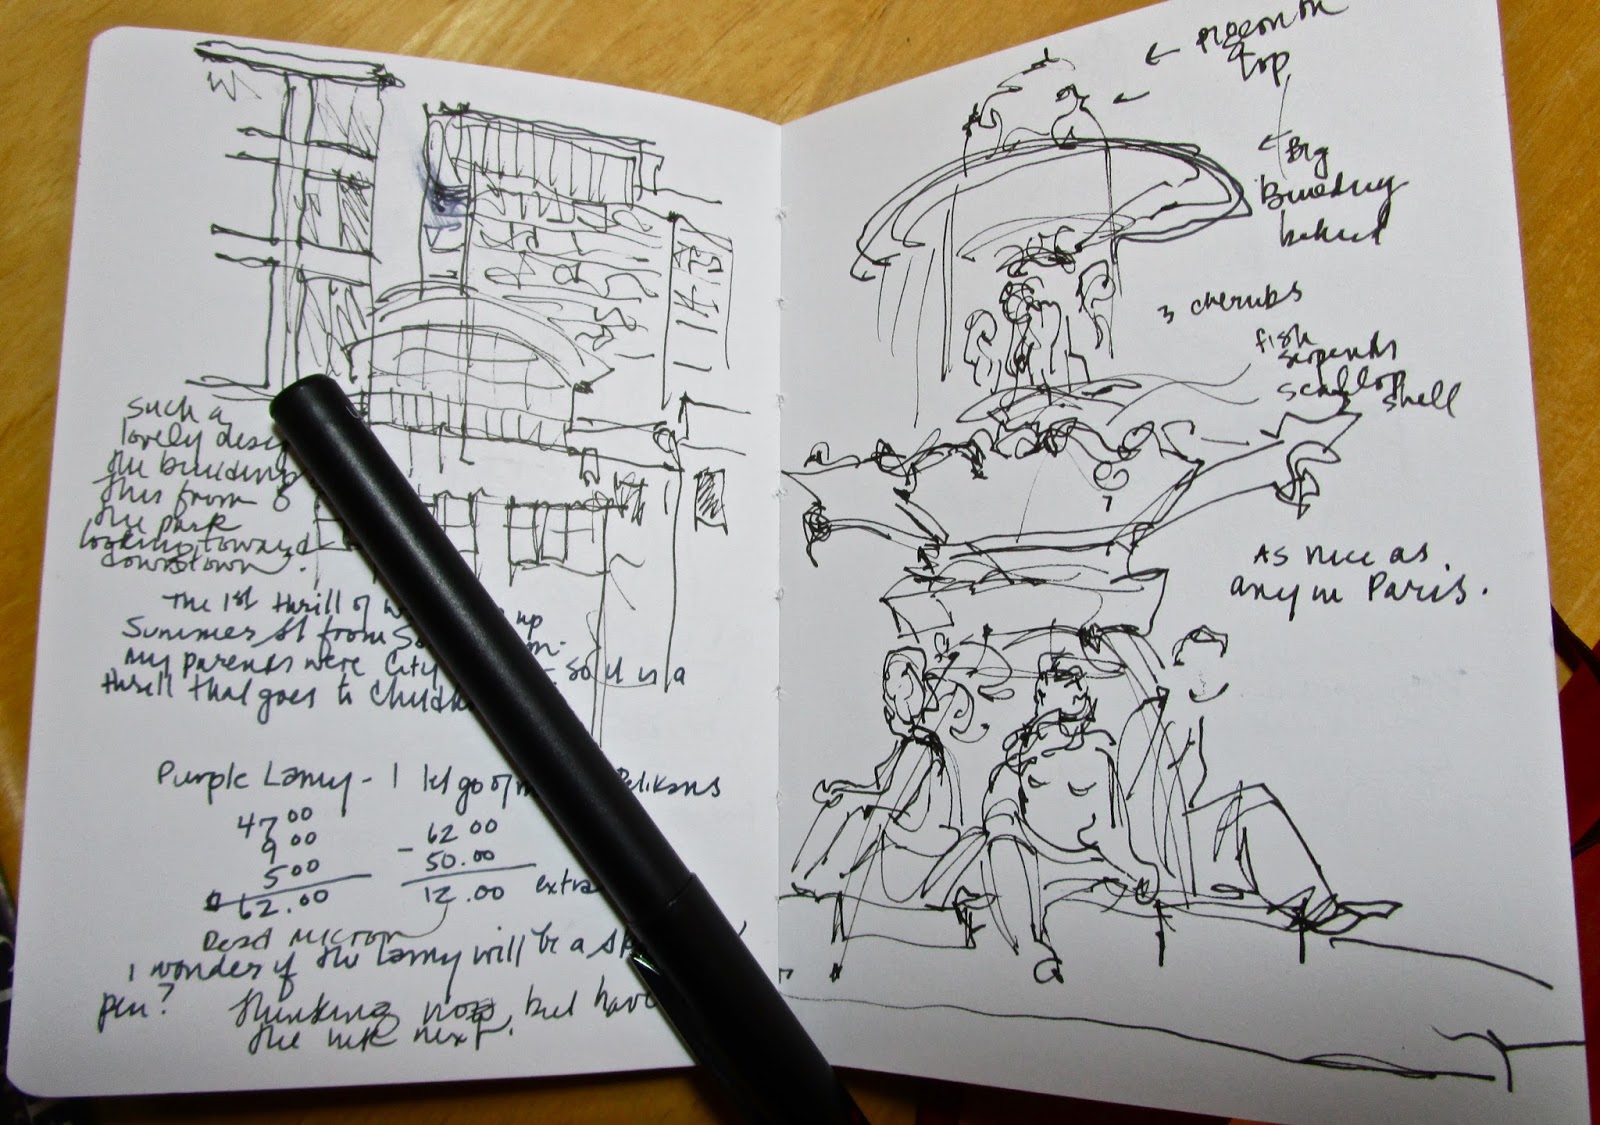 Such a
lovely desig
the building
this from
the park
looking toward
downtown.
The 1st thrill of up
Summer St from So
my parents were City so it is a
thrill that goes to Childh
Purple Lamy - I let go of Pelikans
47.00
9.00
5.00
62.00
- 62.00
50.00
12.00 extra
Dead Micron
I wonder if the Lamy will be a
pen? Thinking not, but have
the ink next.
← pigeon on
top
← Big
Building
behind
3 cherubs
fish
serpents
scallop
shell
As nice as
any in Paris.